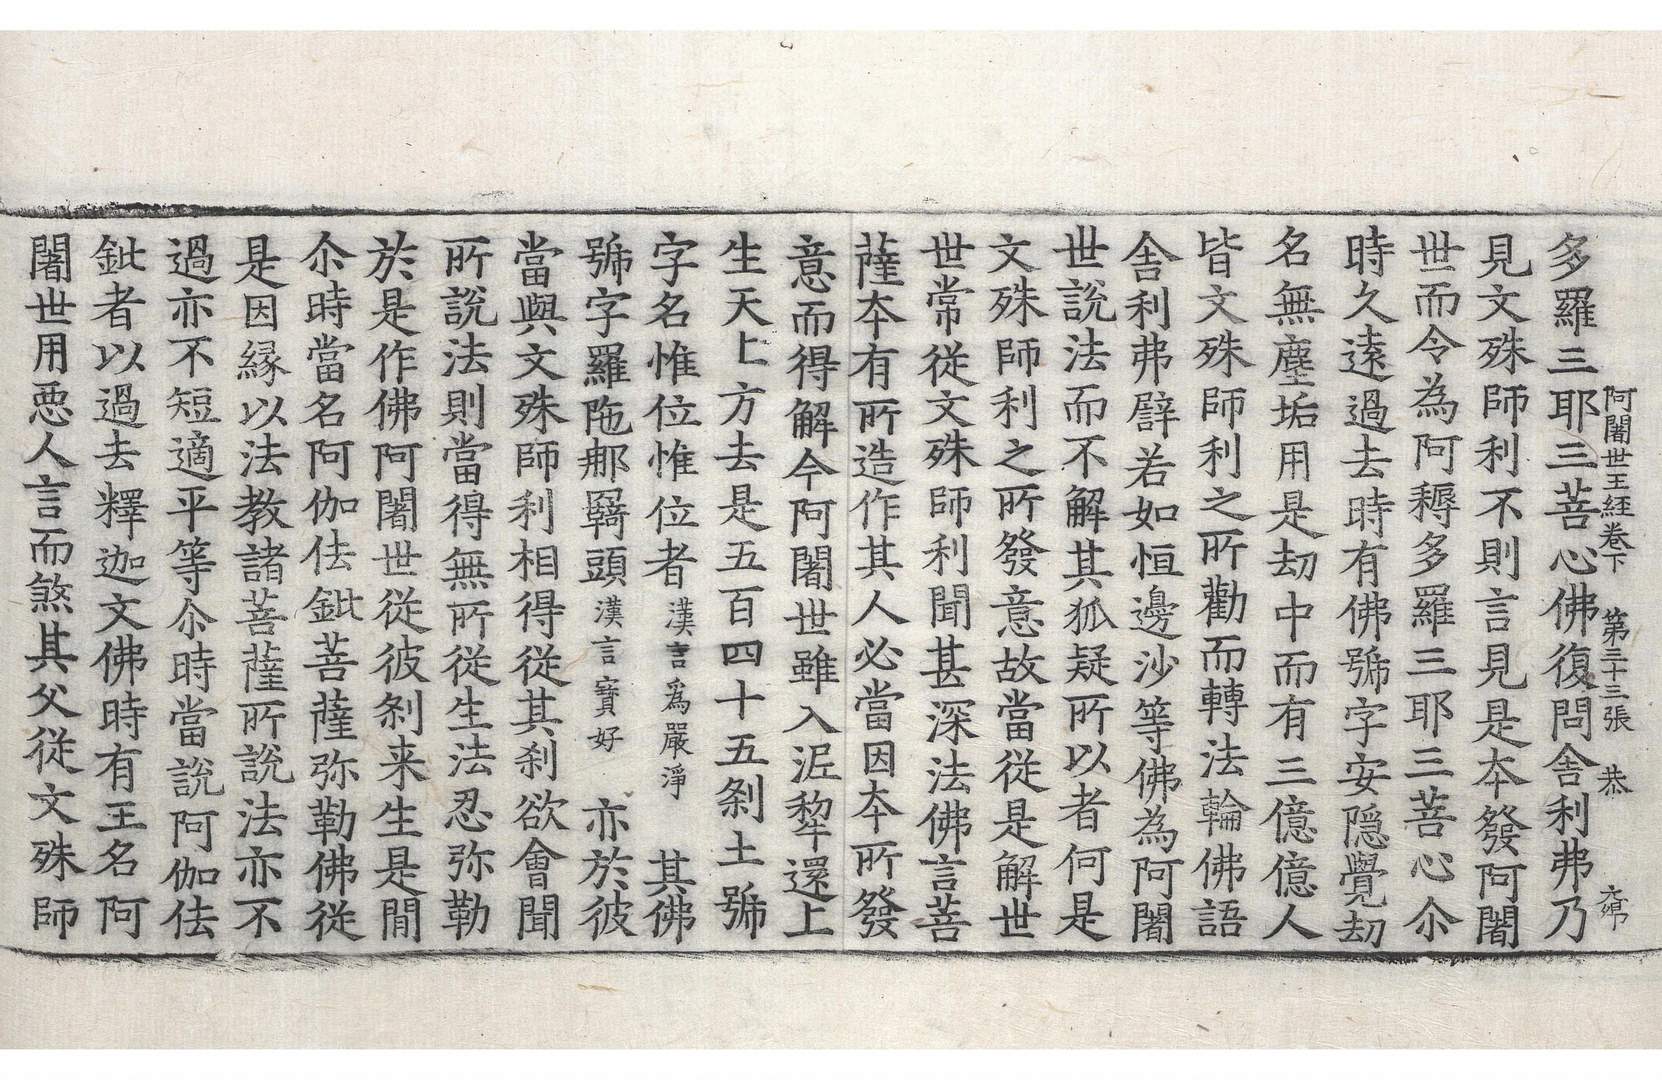 阿闍世王経卷下 第三十三張 恭
多羅三耶三菩心佛復問舍利弗乃
見文殊師利不則言見是夲發阿闍
世而令為阿耨多羅三耶三菩心尒
時久遠過去時有佛號字安隠覺劫
名無塵垢用是劫中而有三億億人
皆文殊師利之所勸而轉法輪佛語
舍利弗譬若如恒邊沙等佛為阿闍
世說法而不解其狐疑所以者何是
文殊師利之所發意故當從是解世
世常從文殊師利聞甚深法佛言菩
薩夲有所造作其人必當因夲所發
意而得解今阿闍世雖入泥犂還上
生天上方去是五百四十五剎土號
字名惟位惟位者漢言為嚴淨其佛
號字羅陁䣯頭漢言寶好亦於彼
當與文殊師利相得從其剎欲會聞
所說法則當得無所從生法忍弥勒
於是作佛阿闍世從彼剎来生是間
尒時當名阿伽佉鈚菩薩弥勒佛從
是因緣以法教諸菩薩所說法亦不
過亦不短適平等尒時當說阿伽佉
鈚者以過去釋迦文佛時有王名阿
闍世用惡人言而煞其父從文殊師